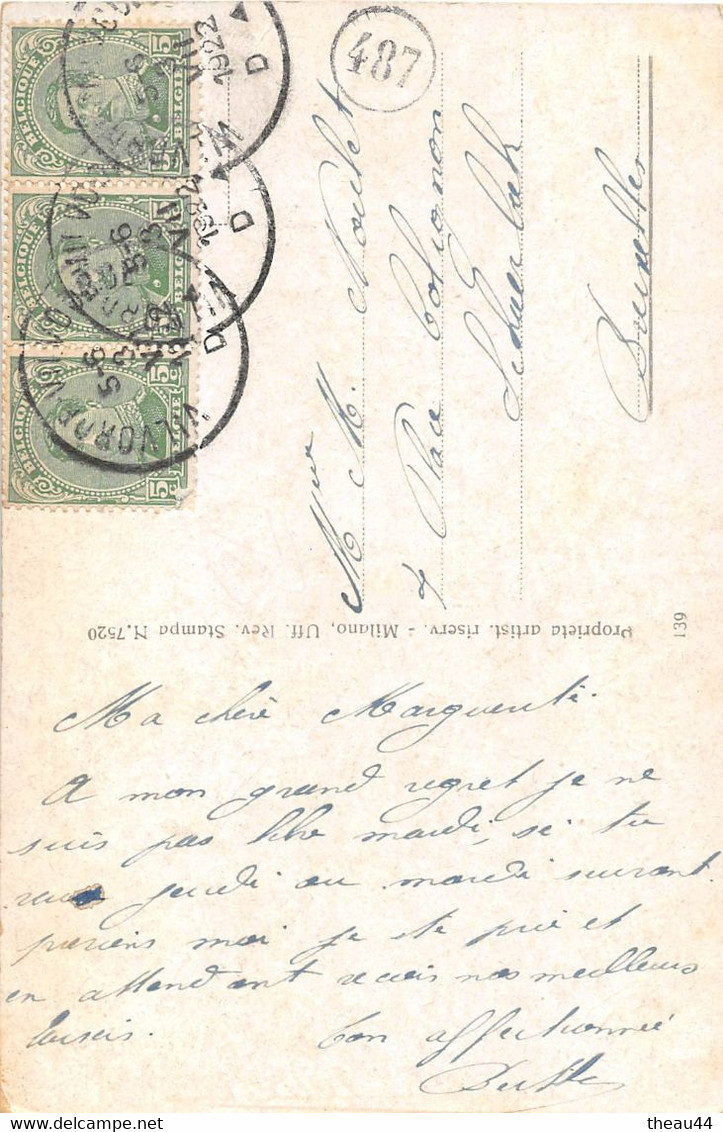 487
BELGIQUE 5 BELGIE
BELGIQUE 5 BELGIE
BELGIQUE 5 BELGIE
VILVORDE
5-6
3
VII
1922
D
Mme M.
4 Place
Bruxelles
139
Proprieta artist. riserv. - Milano, Uff. Rev. Stampa N.7520
Ma chère Marguerite.
A mon grand regret je ne
suis pas libre mardi, si tu
veux jeudi ou mardi suivant.
préviens moi je te prie et
en attendant reçois nos meilleurs
baisers. Ton affectionnée
theau44